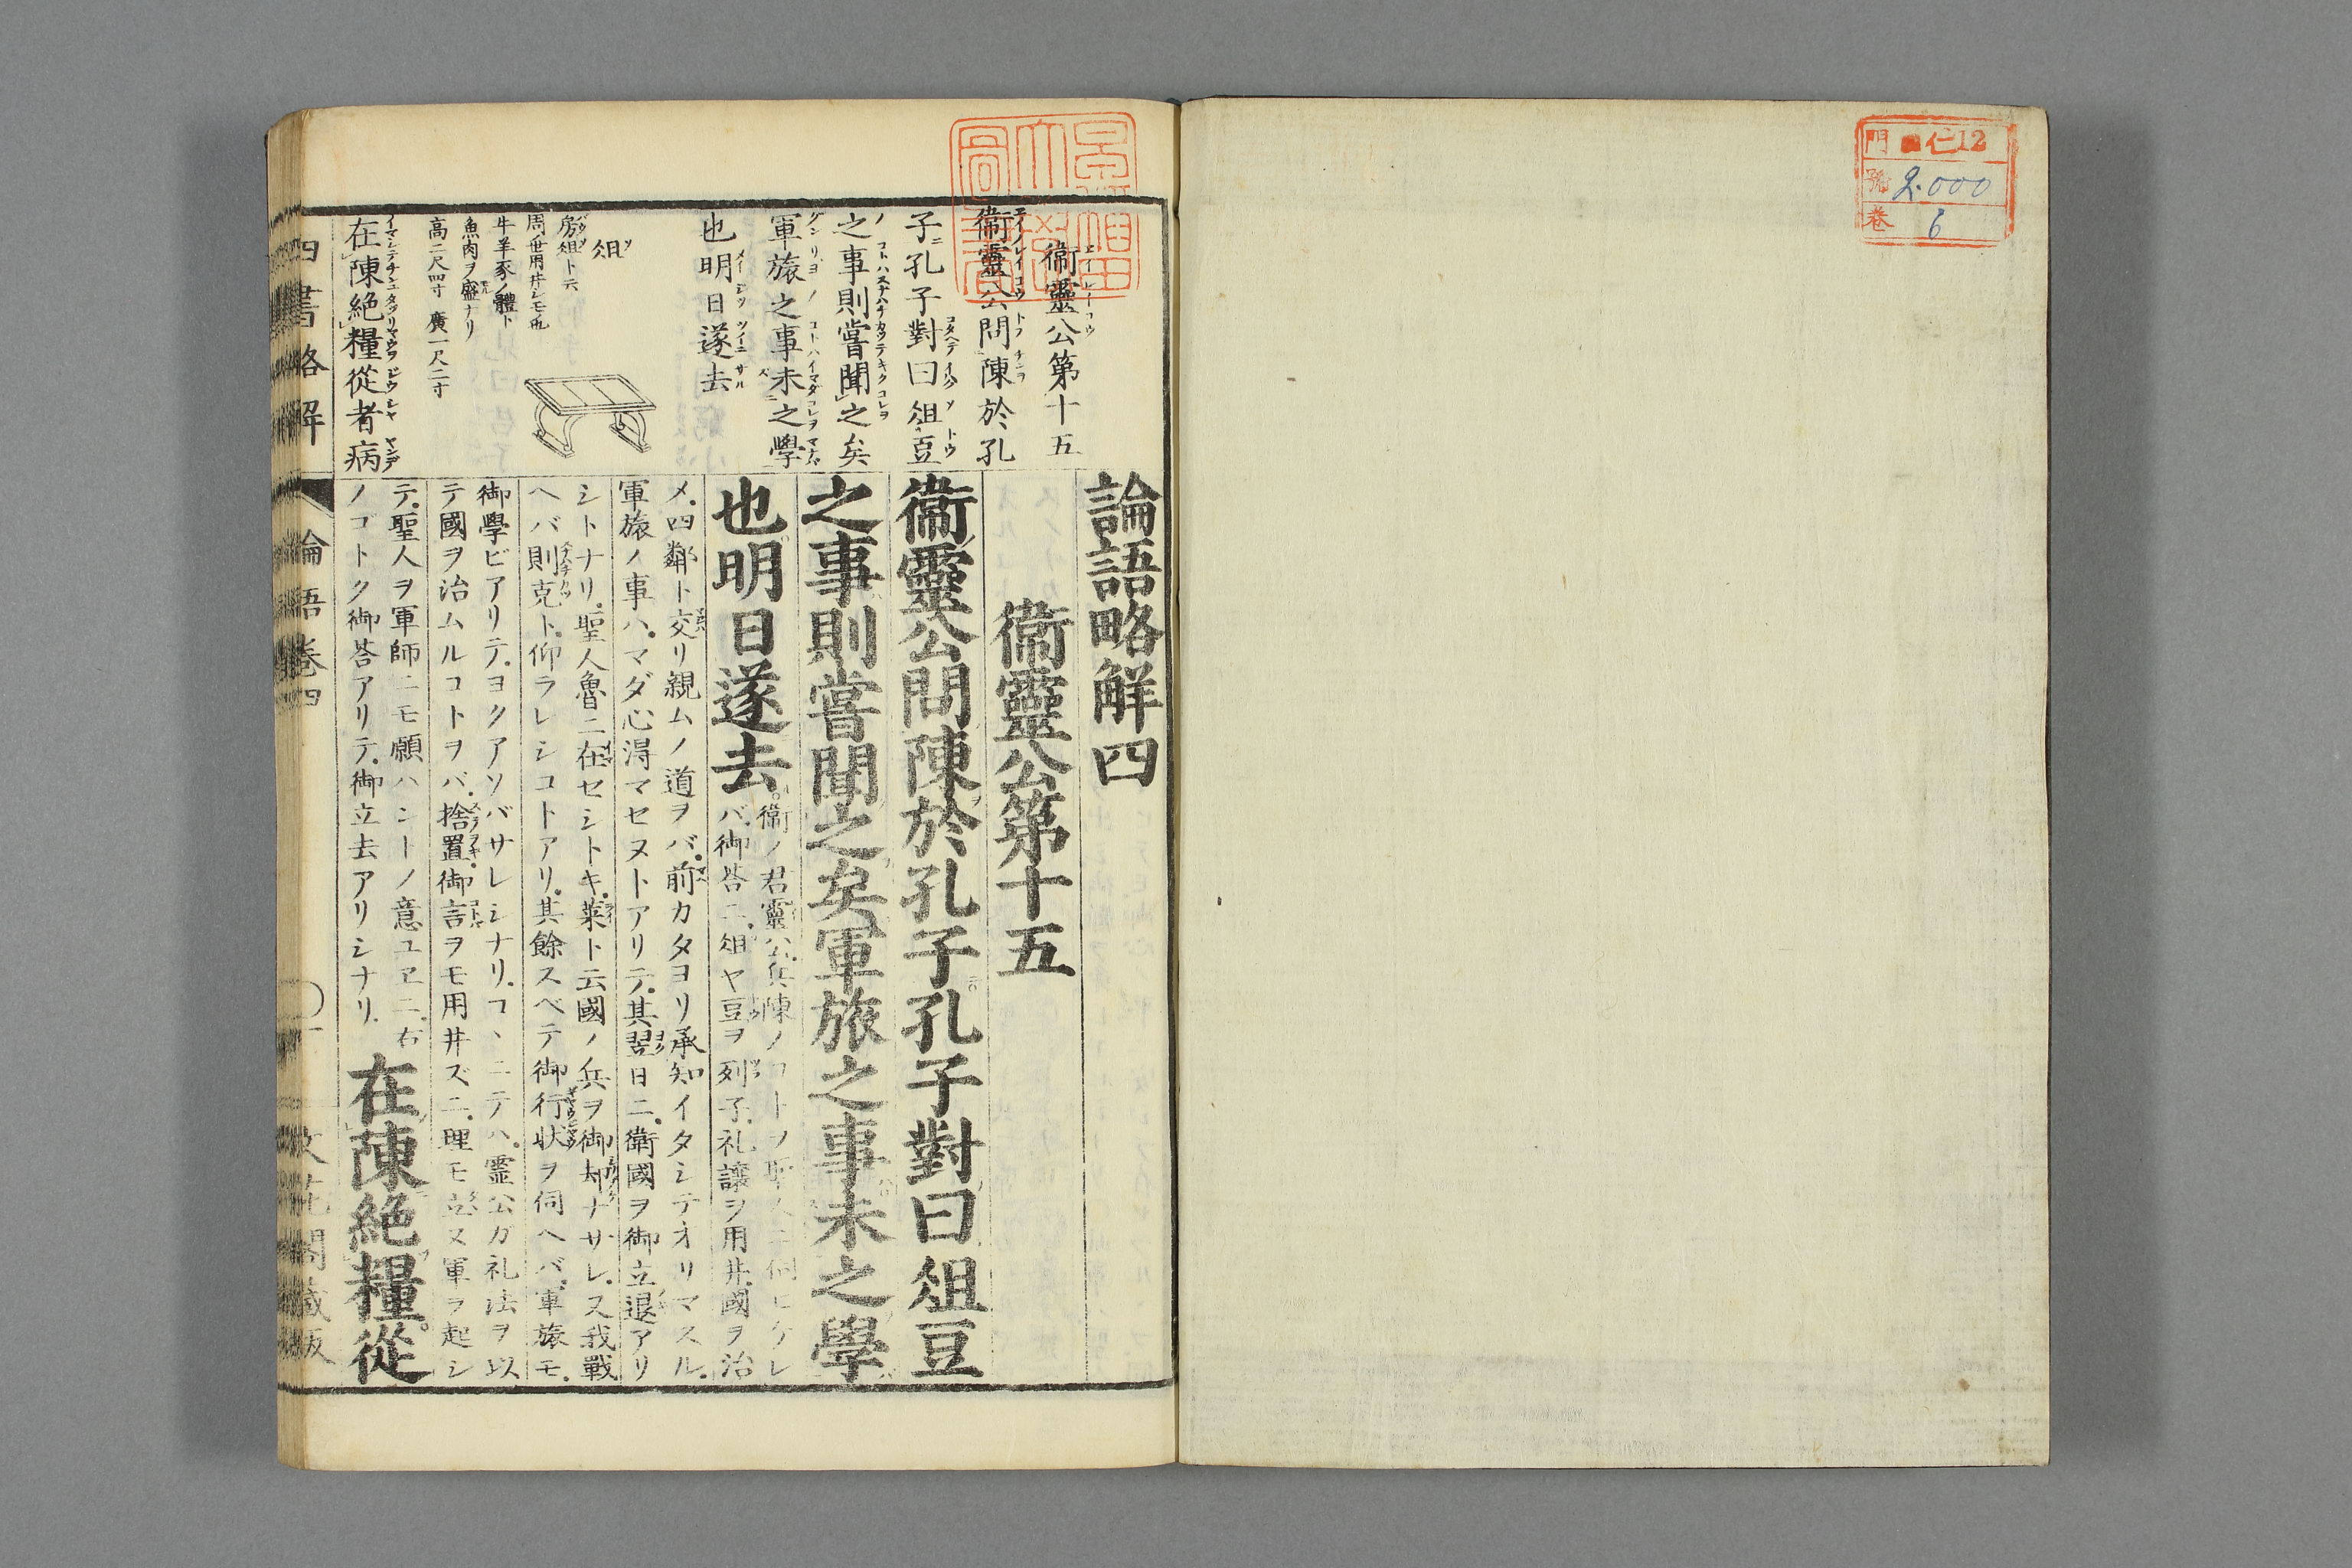 門 仁12
號 2.000
卷 6
衞靈公第十五
衞靈公問陳於孔
子孔子對曰俎豆
之事則嘗聞之矣
軍旅之事未之學
也明日遂去
俎
房俎ト云
周世用井シモ
牛羊豕ノ體ト
魚肉ヲ盛ナリ
高二尺四寸 廣一尺二寸
在陳絶糧從者病
論語略解四
衞靈公第十五
衞靈公問陳於孔子孔子對曰俎豆
之事則嘗聞之矣軍旅之事未之學
也明日遂去
衞ノ君靈公兵陳ノコトヲ聖人ニ伺ヒケレ
バ御答ニ俎ヤ豆ヲ列子礼讓ヲ用井國ヲ治
メ四鄰ト交リ親ムノ道ヲバ前カタヨリ承知イタシテオリマスル
軍旅ノ事ハマダ心得マセヌトアリテ其翌日ニ衞國ヲ御立退アリ
シトナリ聖人魯ニ在セシトキ萊ト云國ノ兵ヲ御却ナサレ又我戰
ヘバ則克ト仰ラレシコトアリ其餘スベテ御行状ヲ伺ヘバ軍旅モ
御學ビアリテヨクアソバサレシナリコヽニテハ霊公ガ礼法ヲ以
テ國ヲ治ムルコトヲバ捨置御言ヲモ用井ズニ理モ立ヌ軍ヲ起シ
テ聖人ヲ軍師ニモ願ハントノ意ユヱニ右
ノゴトク御答アリテ御立去アリシナリ
在陳絶糧從
四書略解 論語卷四 一 文花閣藏版